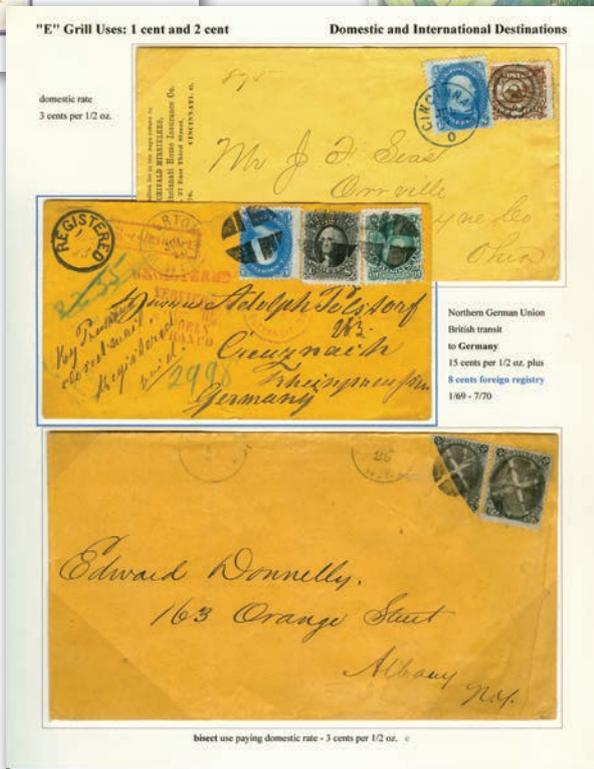 "E" Grill Uses: 1 cent and 2 cent
Domestic and International Destinations
domestic rate
3 cents per 1/2 oz.
Cincinnati Home Insurance Co.
CINCINNATI, O.
875
CINCINNATI
O
Mr J F Seas
Orrville
Wayne Co
Ohio
REGISTERED
REGISTERED
Gustav Adolph Tolstorf
Creuznach
Rheinpreussen
Germany
Registered
2998
Northern German Union
British transit
to Germany
15 cents per 1/2 oz. plus
8 cents foreign registry
1/69 - 7/70
26
Edward Donnelly.
163 Orange Street
Albany
N.Y.
bisect use paying domestic rate - 3 cents per 1/2 oz. c